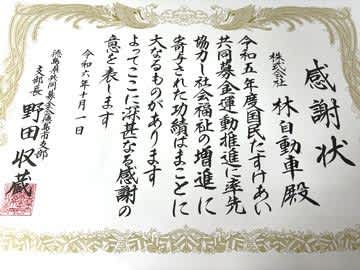 感謝状
株式会社 林自動車殿
令和五年度国民たすけあい
共同募金運動推進に率先
協力し社会福祉の増進に
寄与された功績はまことに
大なるものがあります
よってここに深甚なる感謝の
意を表します
令和六年十月一日
徳島県共同募金会徳島市支部
支部長 野田収蔵